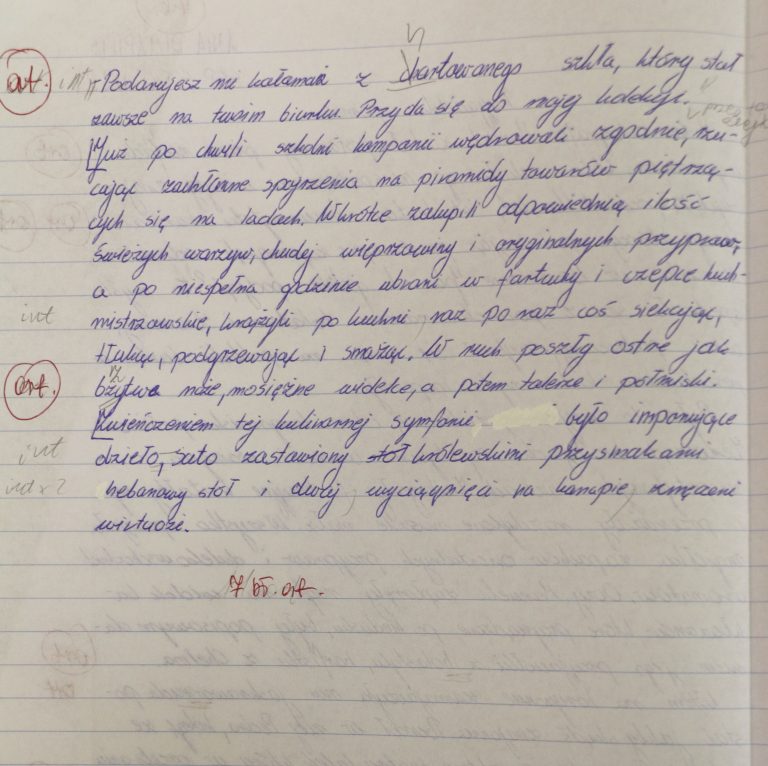 ort. int "Podarujesz mi kałamaż z chartowanego szkła, który stał
zawsze na twoim biurku. Przyda się do mojej kolekcji.
Już po chwili szkolni kompanii wędrowali zgodnie, rzu-
cając zachłanne spojrzenia na piramidy towarów piętrzą-
cych się na ladach. Wkrótce zakupili odpowiednią ilość
świeżych warzyw, chudej wieprzowiny i oryginalnych przypraw,
a po niespełna godzinie ubrani w fartuchy i czepce kuch-
int mistrzowskie, krążyli po kuchni, raz po raz coś siekając,
tłukąc, podgrzewając i smażąc. W ruch poszły ostre jak
ort. bżytwa noże, mosiężne widelce, a potem talerze i półmiski.
rz
Zwieńczeniem tej kulinarnej symfonii było imponujące
int dzieło, suto zastawiony stoł królewskimi przysmakami
int x 2 hebanowy stół i dwój, wyciągnięci na kanapie, zmęczeni
wirtuozi.
7 bł. ort.